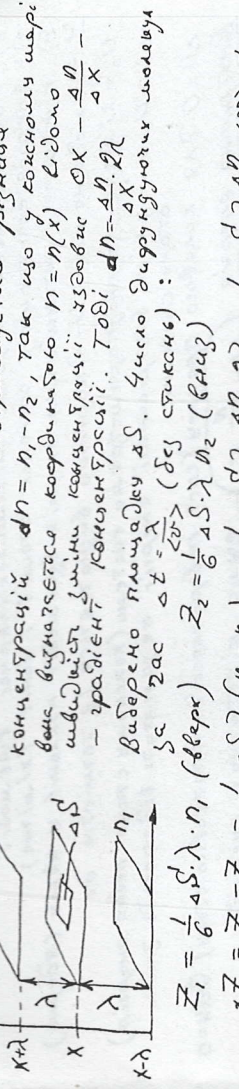 концентрацій dn = n₁ - n₂, так що у кожному шарі
вона визначається координатою n = n(x) Відомо
швидкість зміни концентрації уздовж OX - Δn/Δx -
- градієнт концентрації. Тоді dn = - Δn/Δx · 2λ
Виберемо площадку ΔS. Число дифундуючих молекул
за час Δt = λ/<v> (без стикань) :
Z₁ = 1/6 ΔS·λ·n₁ (вверх) Z₂ = 1/6 ΔS·λ n₂ (вниз)
x+λ
λ
x
ΔS
λ
n₁
x-λ